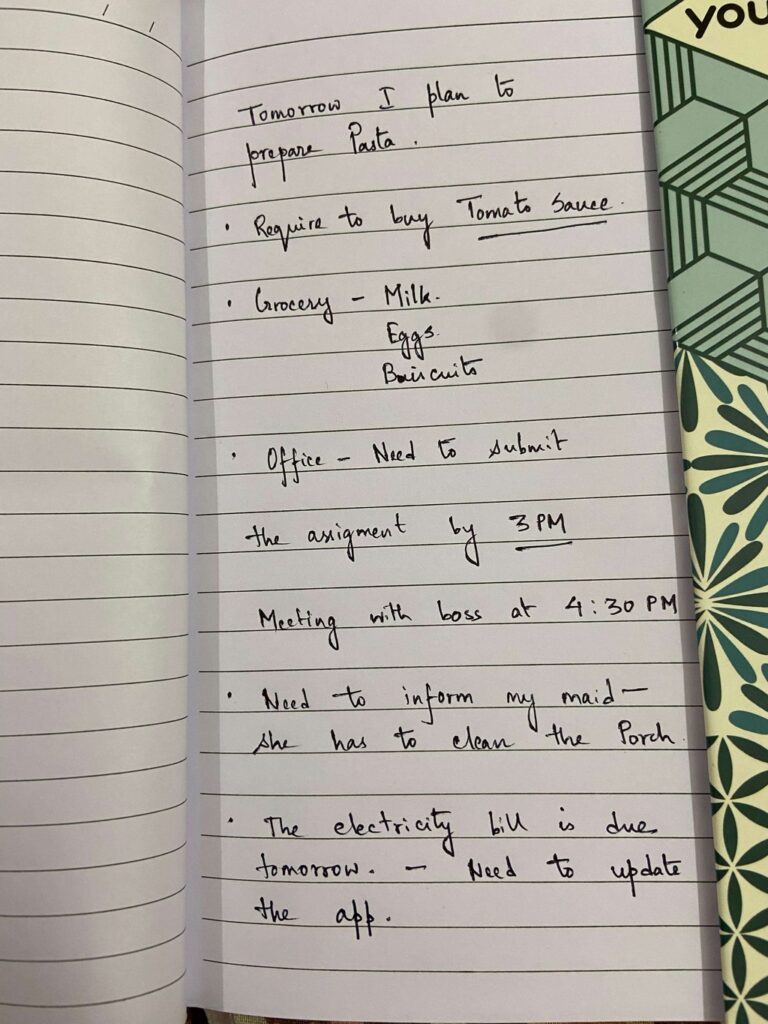 YOU
Tomorrow I plan to
prepare Pasta.
• Require to buy Tomato Sauce.
• Grocery - Milk.
Eggs.
Buiscuits
• Office - Need to submit
the assigment by 3 PM
Meeting with boss at 4:30 PM
• Need to inform my maid -
she has to clean the Porch.
• The electricity bill is due
tomorrow. - Need to update
the app.